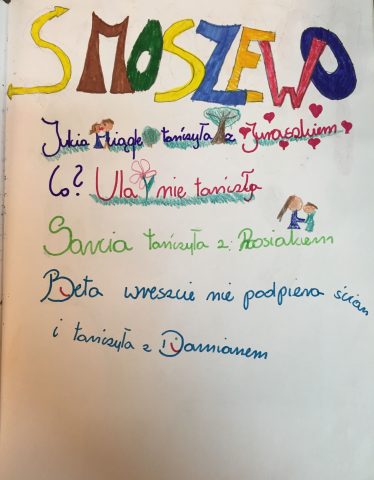 SMOSZEWO
Julia Miągle tańczyła z Jurasakiem
Co? Ula nie tańczyła
Sarcia tańczyła z Rosiakiem
Beta wreszcie nie podpiera ścian
i tańczyła z Damianem